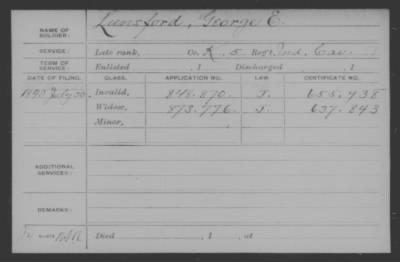 NAME OF SOLDIER: Lunsford, George E.
SERVICE: Late rank, Co. K, 5 Reg't Ind. Cav.
TERM OF SERVICE: Enlisted , 1 Discharged , 1
DATE OF FILING. CLASS. APPLICATION NO. LAW. CERTIFICATE NO.
1890 July 30. Invalid, 848.870 J. 655.438
Widow, 873.776 J. 637.843
Minor,
ADDITIONAL SERVICES:
REMARKS:
Died , 1 , at